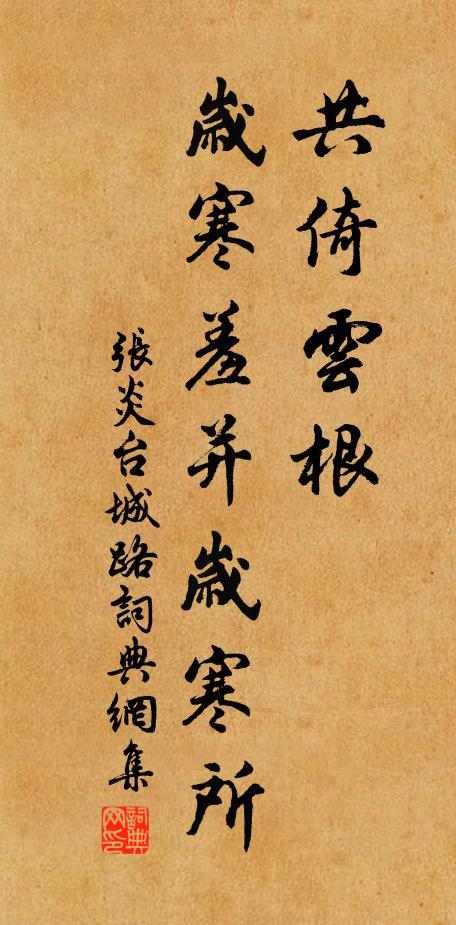 共倚雲根
歲寒羞并歲寒所
張炎台城路詞典網集
詞典网印